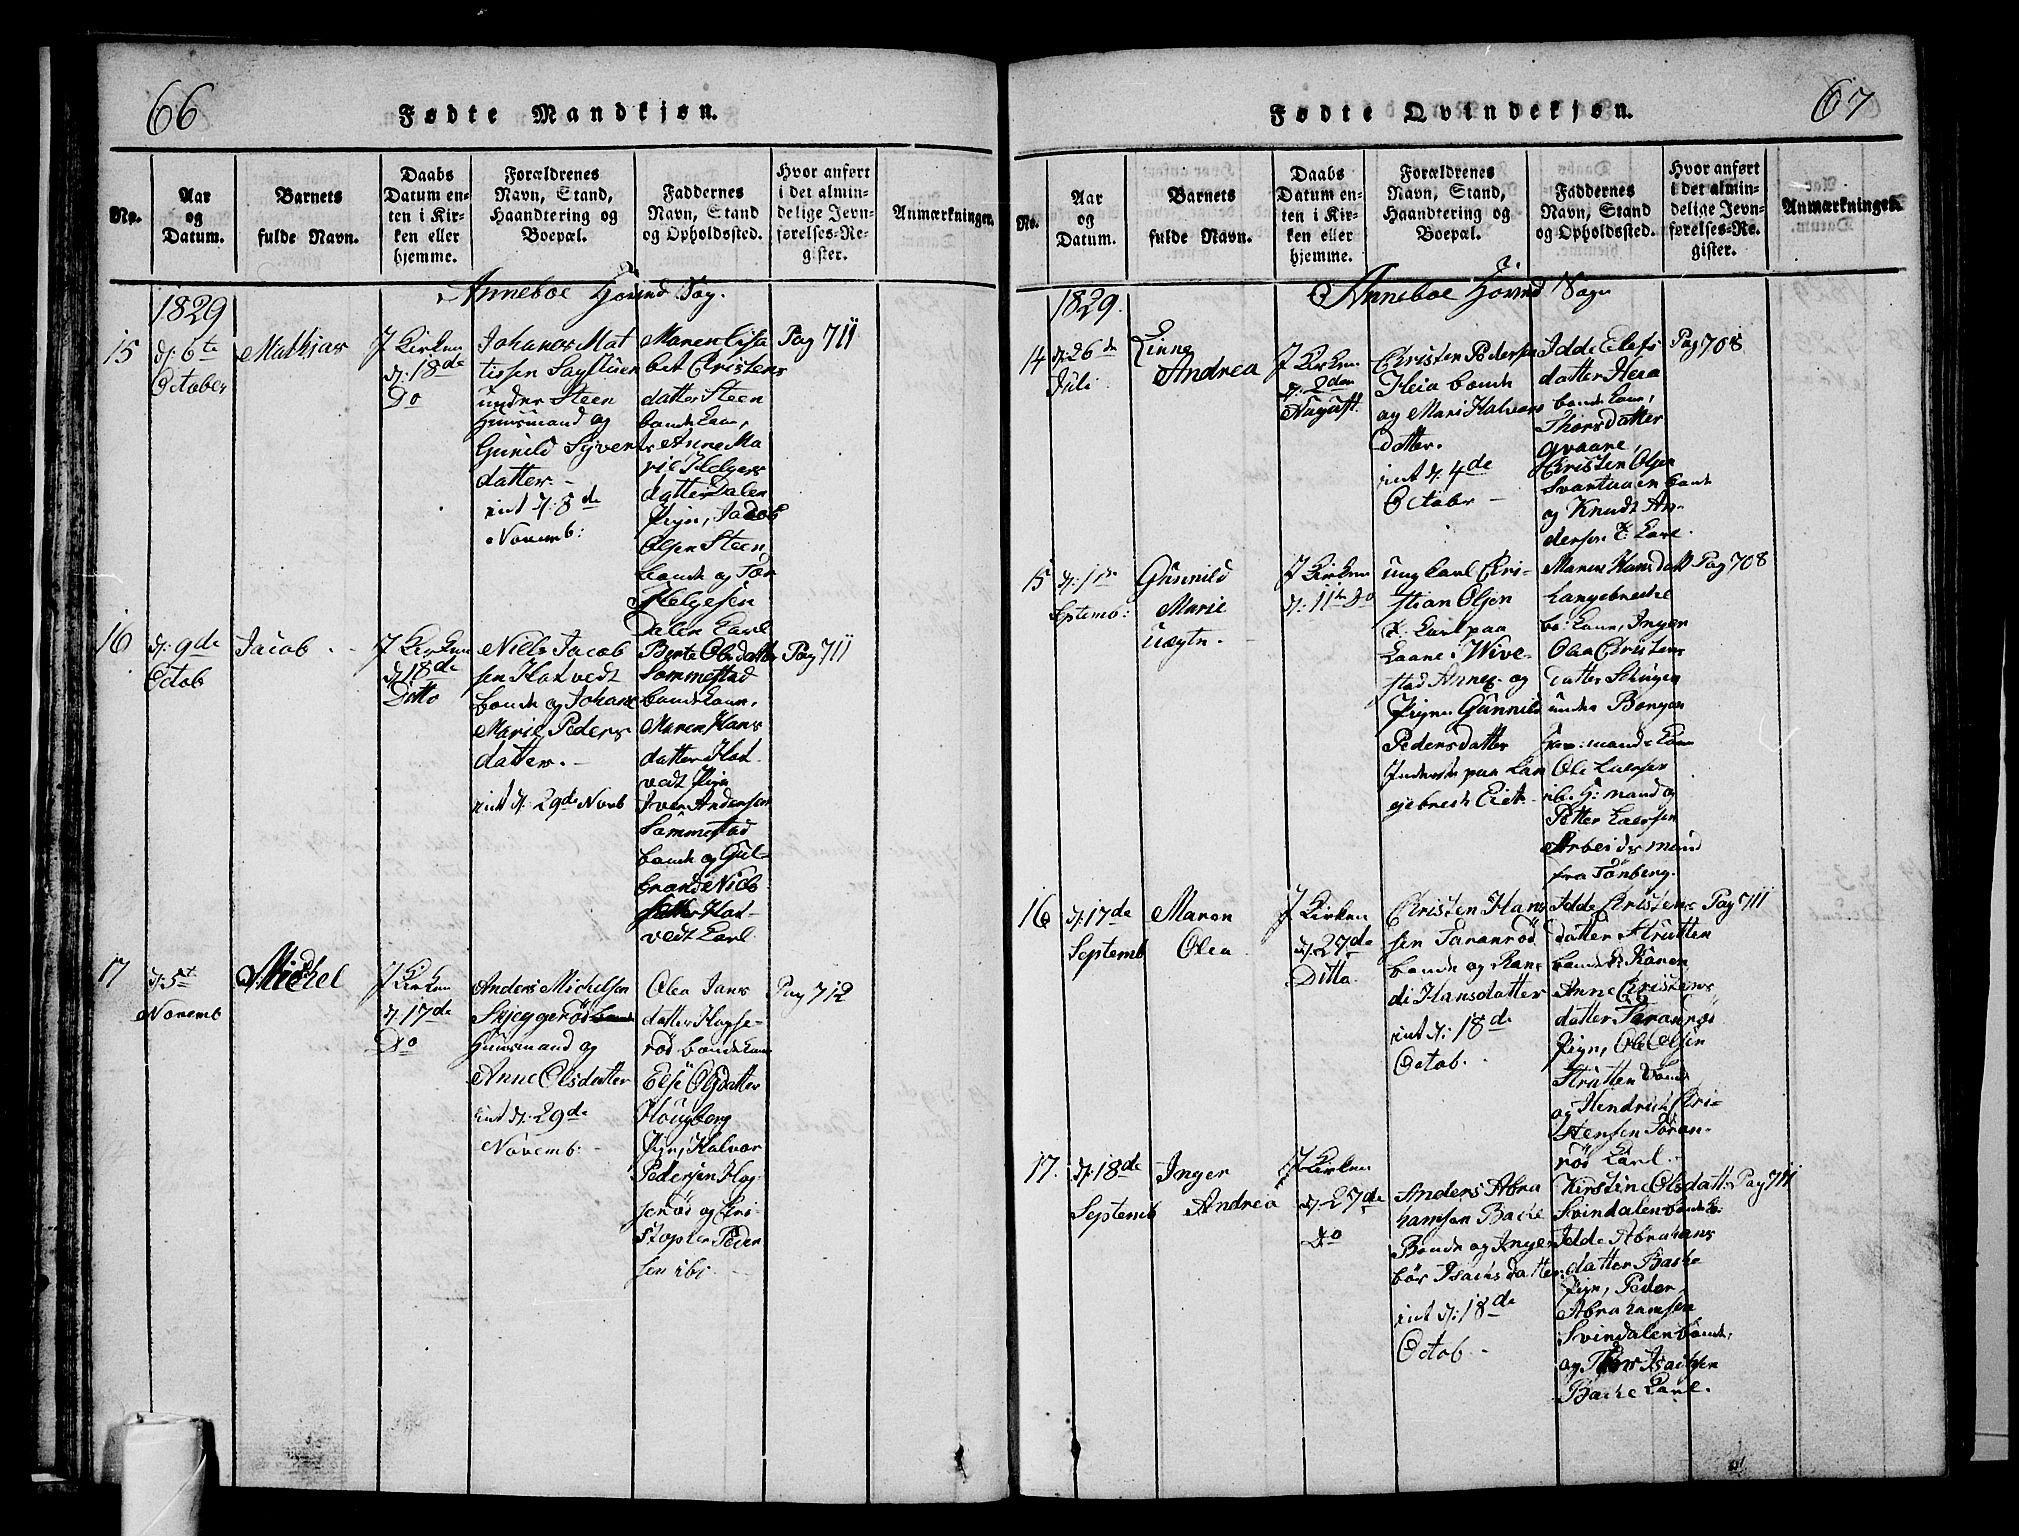 66
Fødte Mandkjøn.
No.
Aar
og
Datum.
Barnets
fulde Navn.
Daabs
Datum en-
ten i Kir-
ken eller
hjemme.
Forældrenes
Navn, Stand,
Haandtering og
Boepæl.
Faddernes
Navn, Stand
og Opholdssted.
Hvor anført
i det almin-
delige Jevn-
førelses-Re-
gister.
Anmærkninger.
1829
Anneboe Hovind Sog.
15
d. 6te
October
Mathias
J Kirken
d. 18de
Do
Johanes Mat
tissen
under Steen
Huusmand og
Gunild Syvert
datter. -
int d. 8de
Novemb:
Maren Lisa
bet Christens
datter Steen
bonde
Anne Ma
rie Helges
datter Dalen
Pign, Jacob
Olsen Steen
bonde og Tor
Helgesen
Dalen Karl
Pag 711
16
d. 9de
Octob
Jacob
J Kirken
d. 18de
Ditto
Niels Jacob
sen Hotvedt
bonde og Johane
Marie Peders
datter. -
int d. 29de Novb
Berte Olsdatter
Sommestad
bonde
Maren Hans
datter Hot
vedt Pign
Iver Andersen
Sommestad
bonde og Gul-
brand Niels
Hot-
vedt Karl
Pag 711
17
d. 5te
Novemb
Michel
J Kirken
d. 17de
Do
Anders Michelsen
Skjeggerød
Huusmand og
Anne Olsdatter
int d. 29de
Novemb. -
Olea Jans
datter Hogse-
rød bonde
Else Olsdatter
Hougberg
Pign, Halvor
Pedersen Hog
serød og Cri-
stopher Peder
sen ibi
Pag 712
67
Fødte Qvindekjøn.
No.
Aar
og
Datum.
Barnets
fulde Navn.
Daabs
Datum en-
ten i Kir-
ken eller
hjemme.
Forældrenes
Navn, Stand,
Haandtering og
Boepæl.
Faddernes
Navn, Stand
og Opholdssted.
Hvor anført
i det almin-
delige Jevn-
førelses-Re-
gister.
Anmærkninger.
1829.
Anneboe Hovind Sogn
14
d. 26de
Juli
Linne
Andrea
J Kirken
d. 2den
August.
Christen Pedersen
Heia bonde
og Mari Halvors
datter.
int d. 4de
October -
Idde Elefs
datter Heia
bonde
Thorsdatter
Christen Olsen
bonde
og Knudt An-
dersen Karl.
Pag 708
15
Septemb:
Gunnild
Marie
Uægte. -
J Kirken
d. 11te Do
ungkarl Cri-
stian Olsen
Karl paa
Wive-
stad Annex og
Pigen Gunnild
Pedersdatter
Inderste paa Lan
gebrek Eiet
Maren Hansdatt
Langebrecke
Inger
Olea Christens
datter
under Borgen
Ole Laersen
ib. H: mand og
Petter Laersen
Arbeidsmand
fra Tønberg.
Pag 708
16
d. 17de
Septemb
Maren
Olea
J Kirken
d. 27de
Ditto.
Christen Hans
sen Taranrød
bonde og Ran
di Hansdatter
int d. 18de
Octob. -
Idde Christens
datter Strutten
Anne Christens
datter Taranrød
Pign, Ole Olsen
Strutten bonde
og Hendrich Cri-
stensen Toran-
rød Karl.
Pag 711
17.
d. 18de
Septemb
Inger
Andrea
J Kirken
d. 27de
Do
Anders Abra
hamsen Backe
Bonde og Inge
bør Isachsdatter
int d. 18de
Octob. -
Kirstine Olsdatt
Svindalen bonde
Idde Abrahans
datter Backe
Pign, Peder
Abrahamsen
Svindalen bonde,
og Isachsen
Backe Karl.
Pag 711